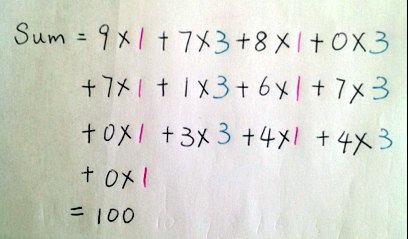 Sum = 9×1 + 7×3 + 8×1 + 0×3
+ 7×1 + 1×3 + 6×1 + 7×3
+ 0×1 + 3×3 + 4×1 + 4×3
+ 0×1
= 100